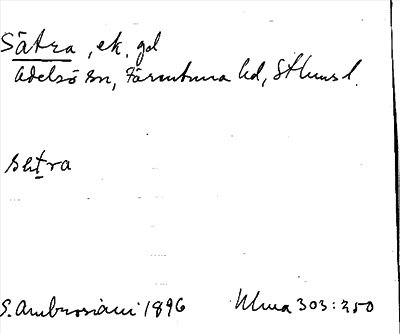 Sätra, ek. gd
Adelsö sn, Färentuna hd, Sthms l.
sætra
S. Ambrosiani 1896 Ulma 303:250